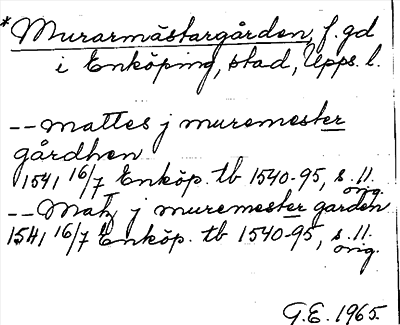 *Murarmästargården, f. gd
i Enköping, stad, Upps. l.
--mattes j muremester
gårdhen
1541 16/7 Enköp. tb 1540-95, s. 11.
orig.
--Matz j muremester garden
1541 16/7 Enköp. tb 1540-95, s. 11.
orig.
G.E. 1965.